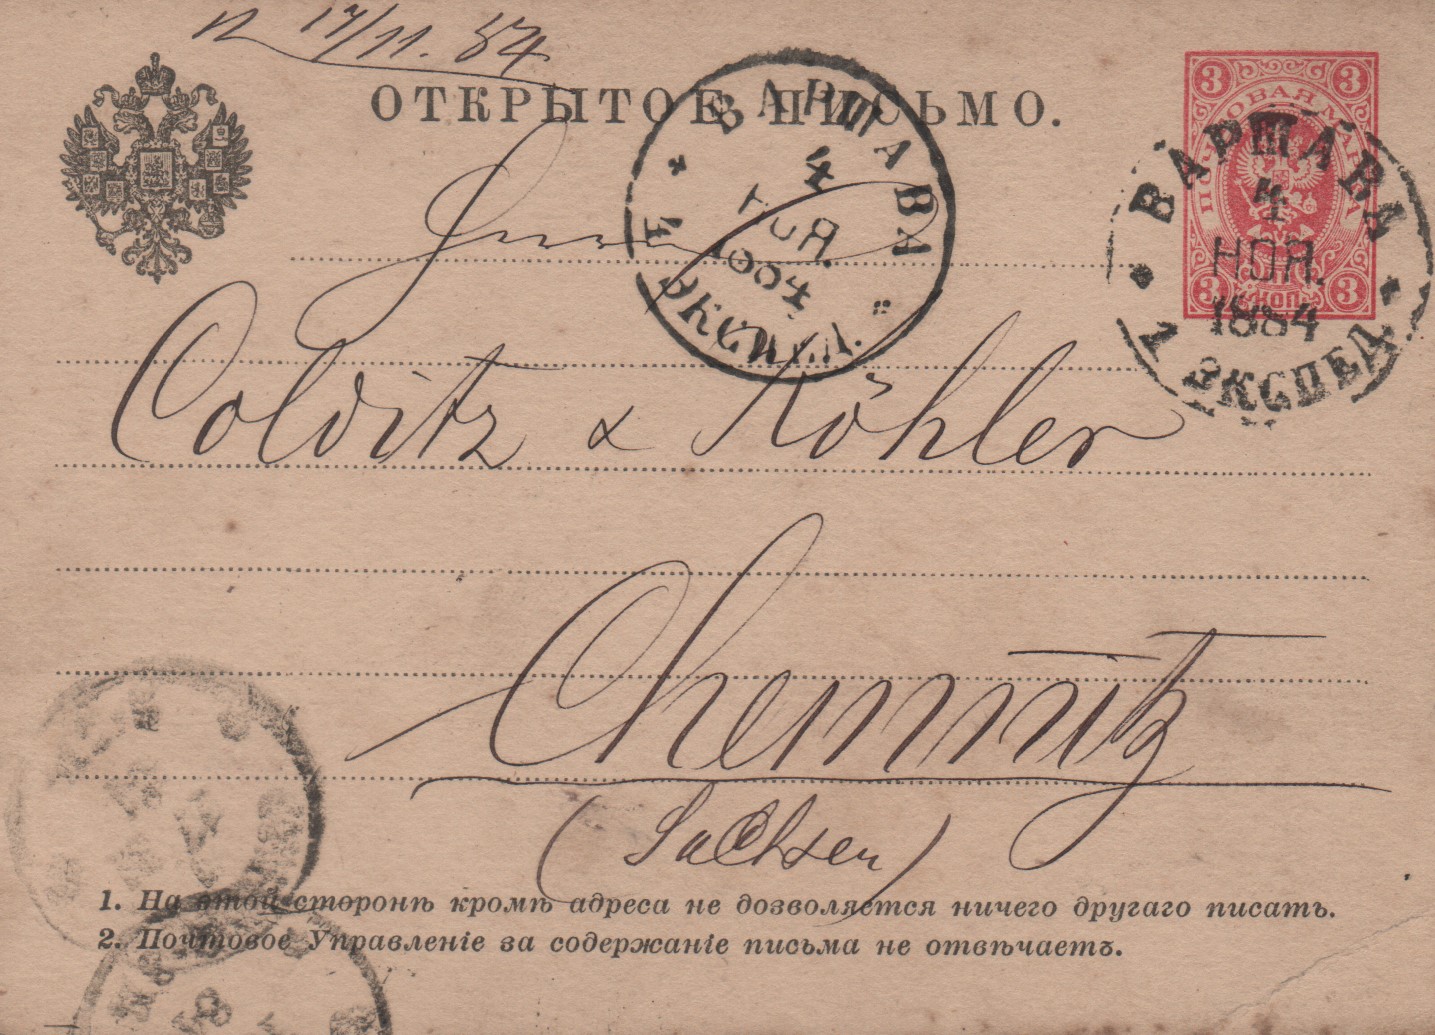 17/11. 84
ОТКРЫТОЕ ПИСЬМО.
3 3
ПОЧТОВАЯ МАРКА
3 КОП. 3
ВАРШАВА
4
НОЯ.
1884
ЭКСПЕД.
ВАРШАВА
4
НОЯ.
1884
1 ЭКСПЕД.
Colditz & Köhler
Chemnitz
(Sachsen)
1. На этой сторонѣ кромѣ адреса не дозволяется ничего другаго писать.
2. Почтовое Управленіе за содержаніе письма не отвѣчаетъ.